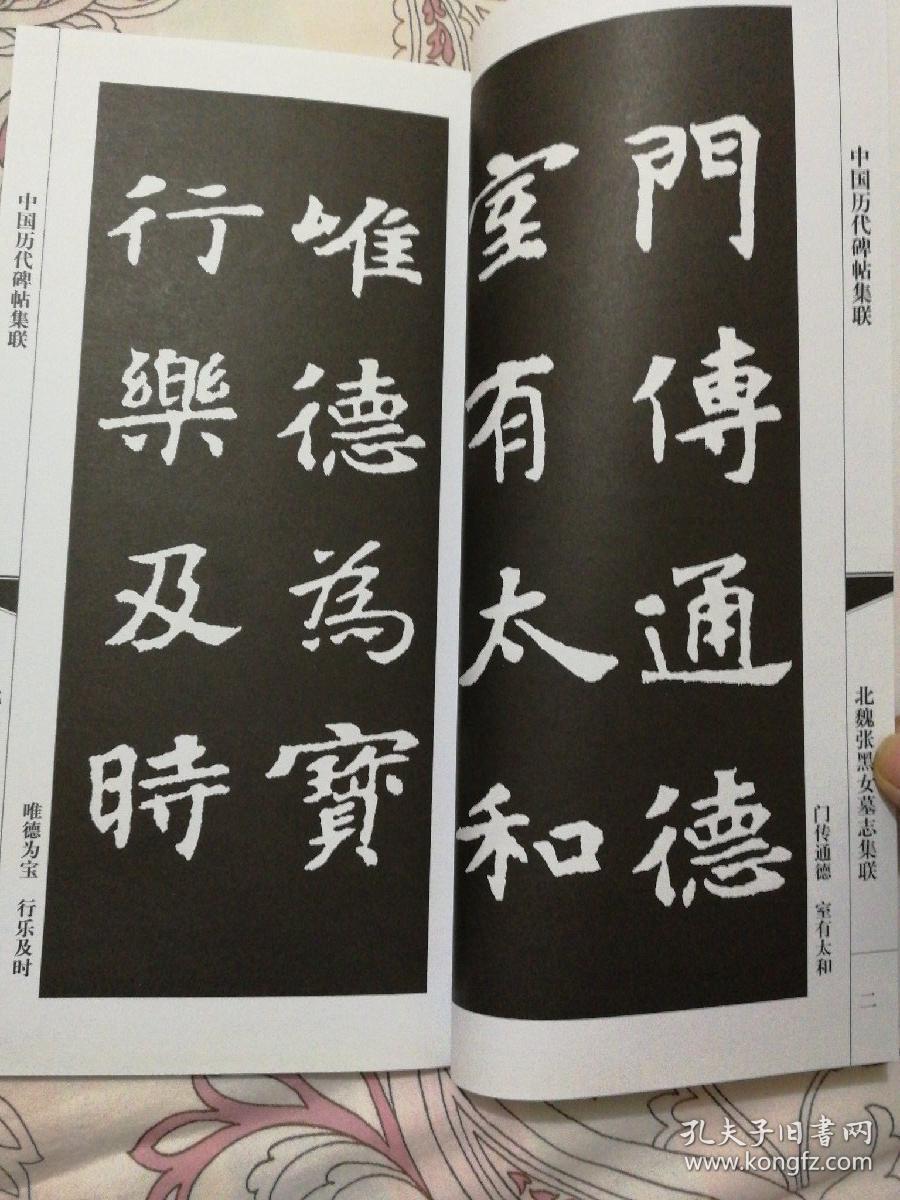 中国历代碑帖集联
北魏张黑女墓志集联
二
門傳通德
室有太和
门传通德 室有太和
唯德為寶
行樂及時
唯德为宝 行乐及时
中国历代碑帖集联
孔夫子旧书网
www.kongfz.com